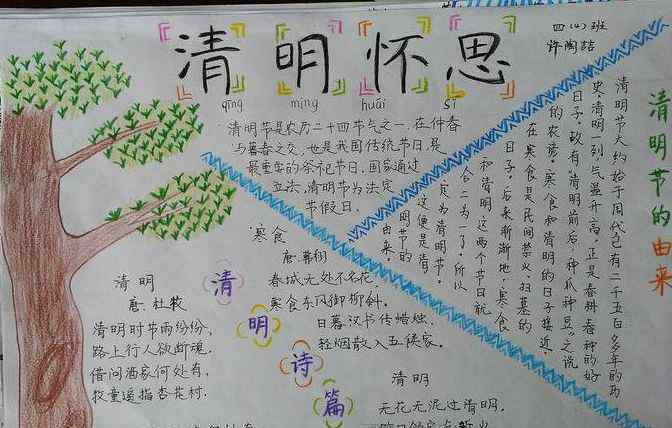 清明怀思
qīng míng huái sī
四(4)班
许陶喆
清明节是农历二十四节气之一,在仲春
与暮春之交,也是我国传统节日,是
最重要的祭祀节日。国家通过
立法,清明节为法定
节假日。
清明节的由来
清明节大约始于周代已有二千五百多年的历
史,清明一到气温升高,正是春耕春种的好
日子,故有“清明前后,种瓜种豆”之说
的农谚。寒食和清明的日子接近,
在寒食是民间禁火扫墓的
日子,后来渐渐地,寒食
和清明这两个节日就
合二为一了。所以
食为清明节。
这便是清明
节的
由来。
清明诗篇
清明
唐.杜牧
清明时节雨纷纷,
路上行人欲断魂。
借问酒家何处有,
牧童遥指杏花村.
寒食
唐.韩翃
春城无处不飞花,
寒食东风御柳斜.
日暮汉书传蜡烛.
轻烟散入五侯家.
清明
无花无酒过清明,